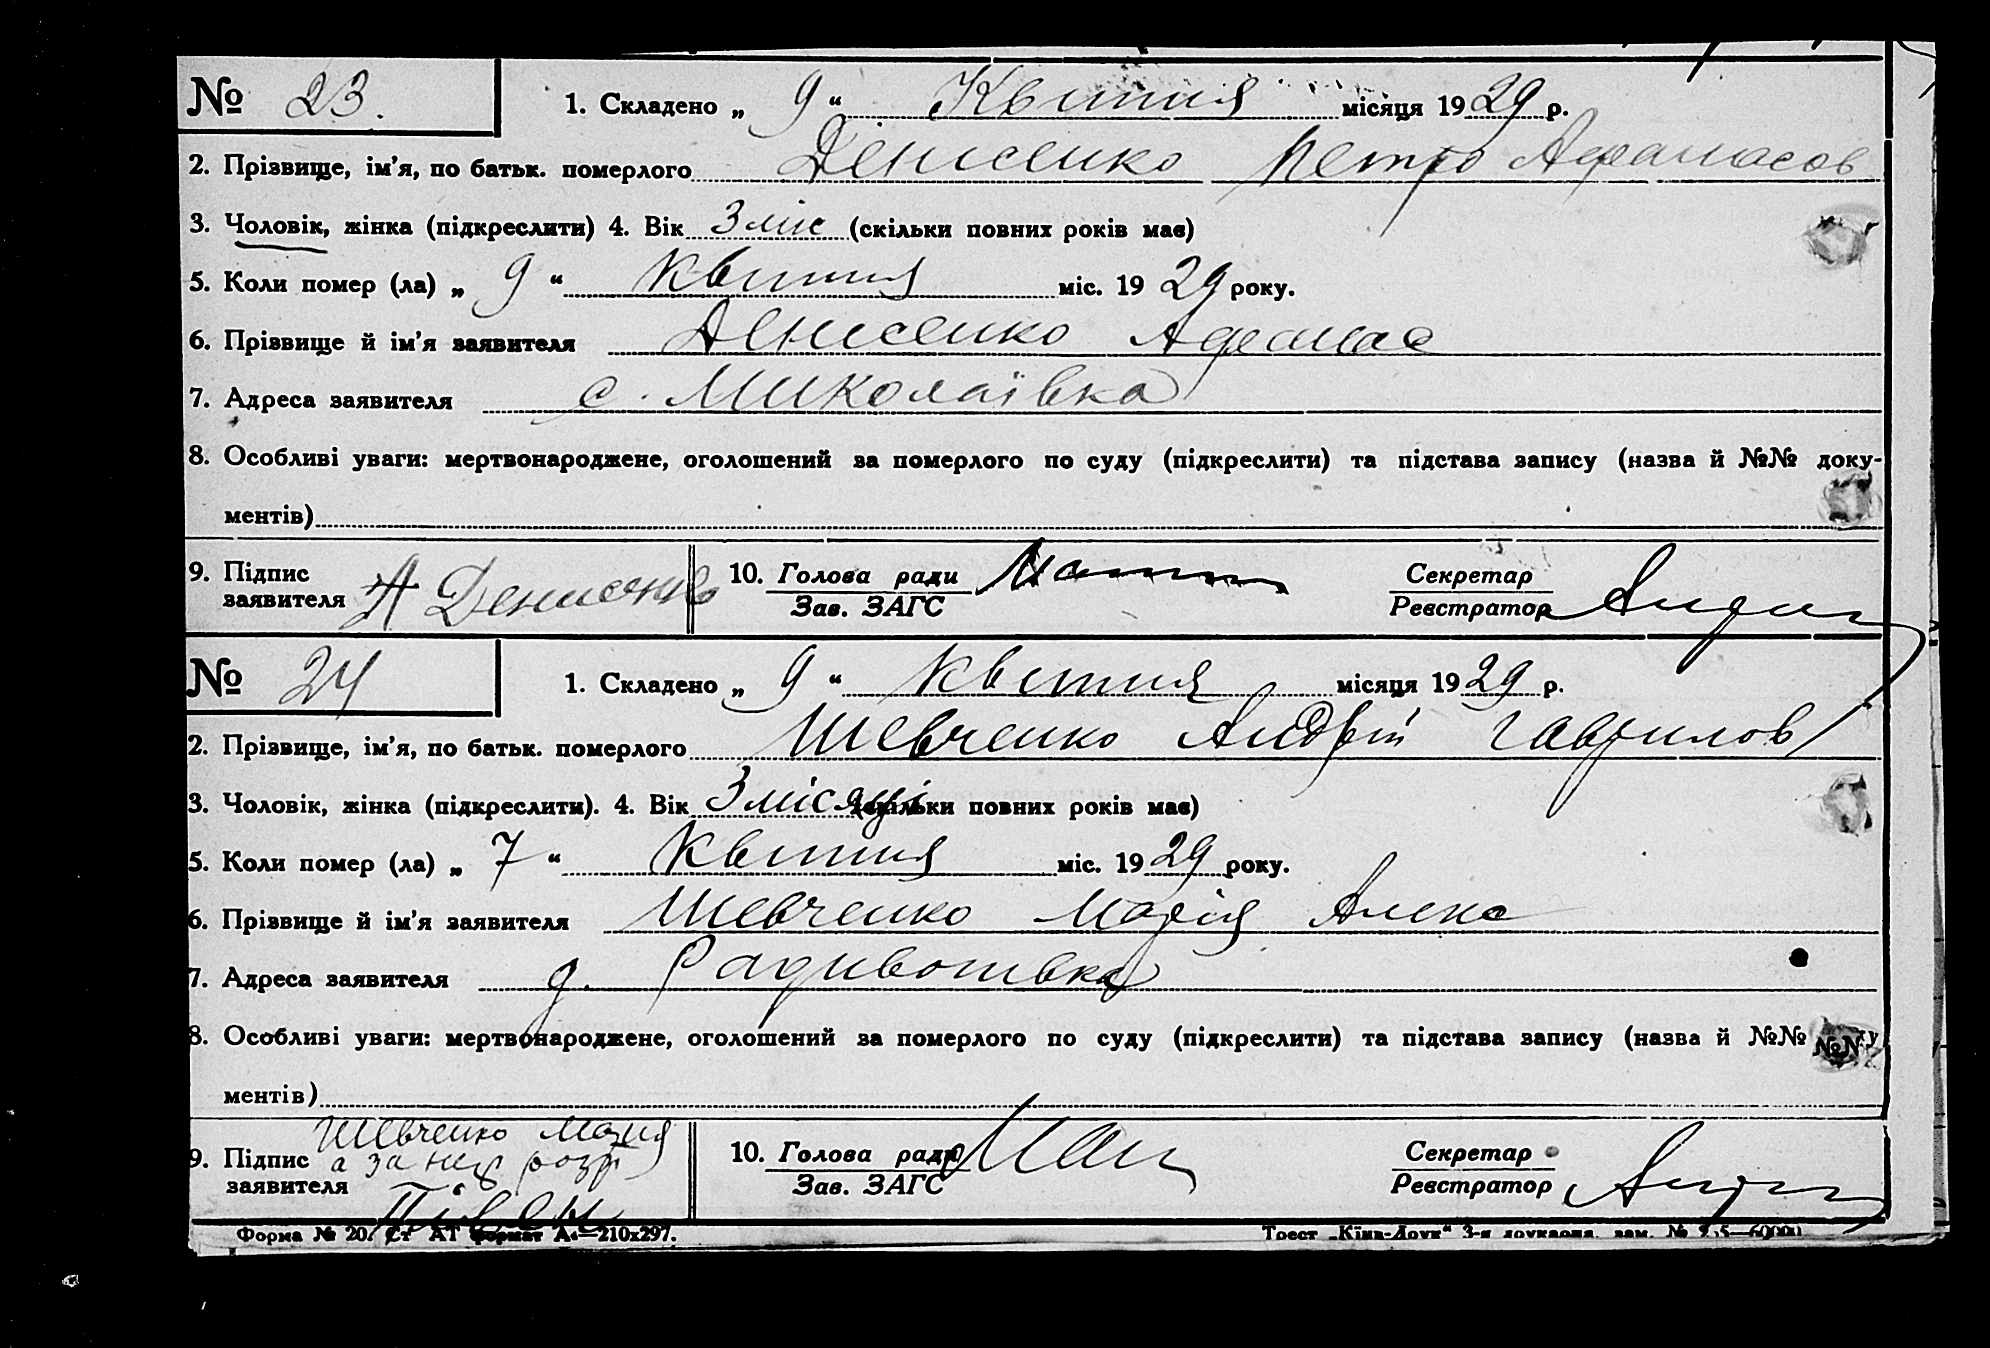 № 23. 1. Складено „ 9 “ Квітня місяця 1929 р.
2. Прізвище, ім’я, по батьк. померлого Денисенко Петро Афанасов
3. Чоловік, жінка (підкреслити) 4. Вік 3 міс (скільки повних років має)
5. Коли помер (ла) „ 9 “ Квітня міс. 1929 року.
6. Прізвище й ім’я заявителя Денисенко Афанас
7. Адреса заявителя с. Миколаївка
8. Особливі уваги: мертвонароджене, оголошений за померлого по суду (підкреслити) та підстава запису (назва й №№ доку-
ментів)
9. Підпис заявителя А Денисенко 10. Голова ради Зав. ЗАГС Секретар Реєстратор
№ 24 1. Складено „ 9 “ Квітня місяця 1929 р.
2. Прізвище, ім’я, по батьк. померлого Шевченко Андрій Гаврилов
3. Чоловік, жінка (підкреслити). 4. Вік 3 місяці (скільки повних років має)
5. Коли помер (ла) „ 7 “ Квітня міс. 1929 року.
6. Прізвище й ім’я заявителя Шевченко Марія Алекс
7. Адреса заявителя
8. Особливі уваги: мертвонароджене, оголошений за померлого по суду (підкреслити) та підстава запису (назва й №№
ментів)
Шевченко Мария
9. Підпис заявителя а за неї розп 10. Голова ради Зав. ЗАГС Секретар Реєстратор
Форма № 20. Ст АТ формат А4—210x297. Трест „Київ-Друк“ 3-я друкарня. зам. №